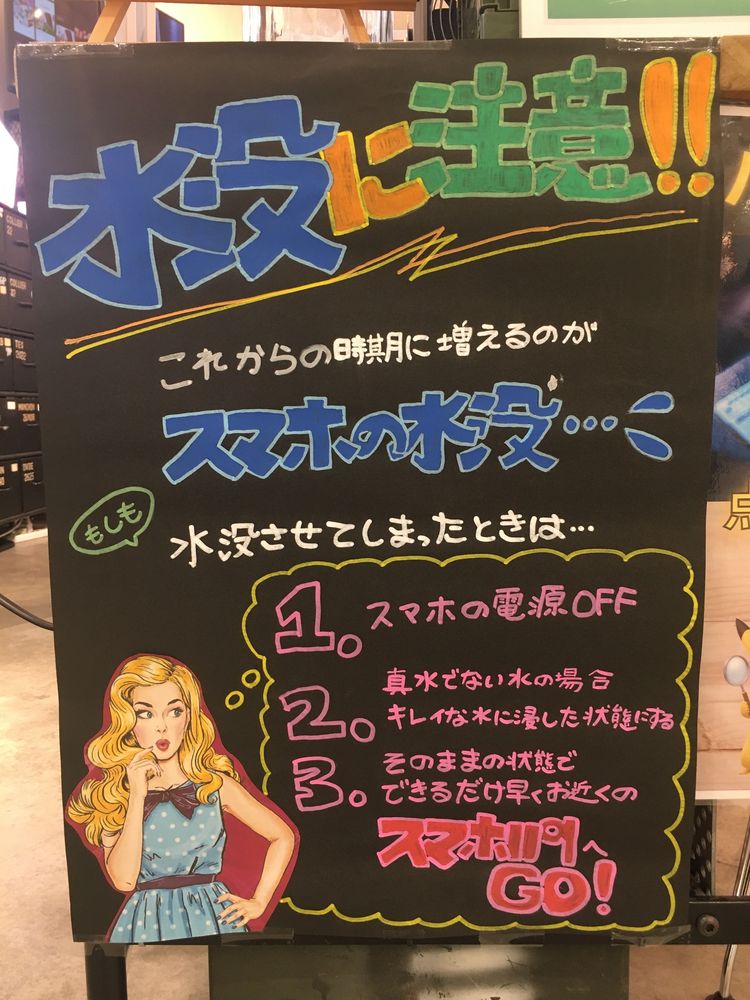 水没に注意!!
これからの時期に増えるのが
スマホの水没…
もしも
水没させてしまったときは…
1. スマホの電源OFF
2. 真水でない水の場合
キレイな水に浸した状態にする
3. そのままの状態で
できるだけ早くお近くの
スマホ川門へ
GO!
点